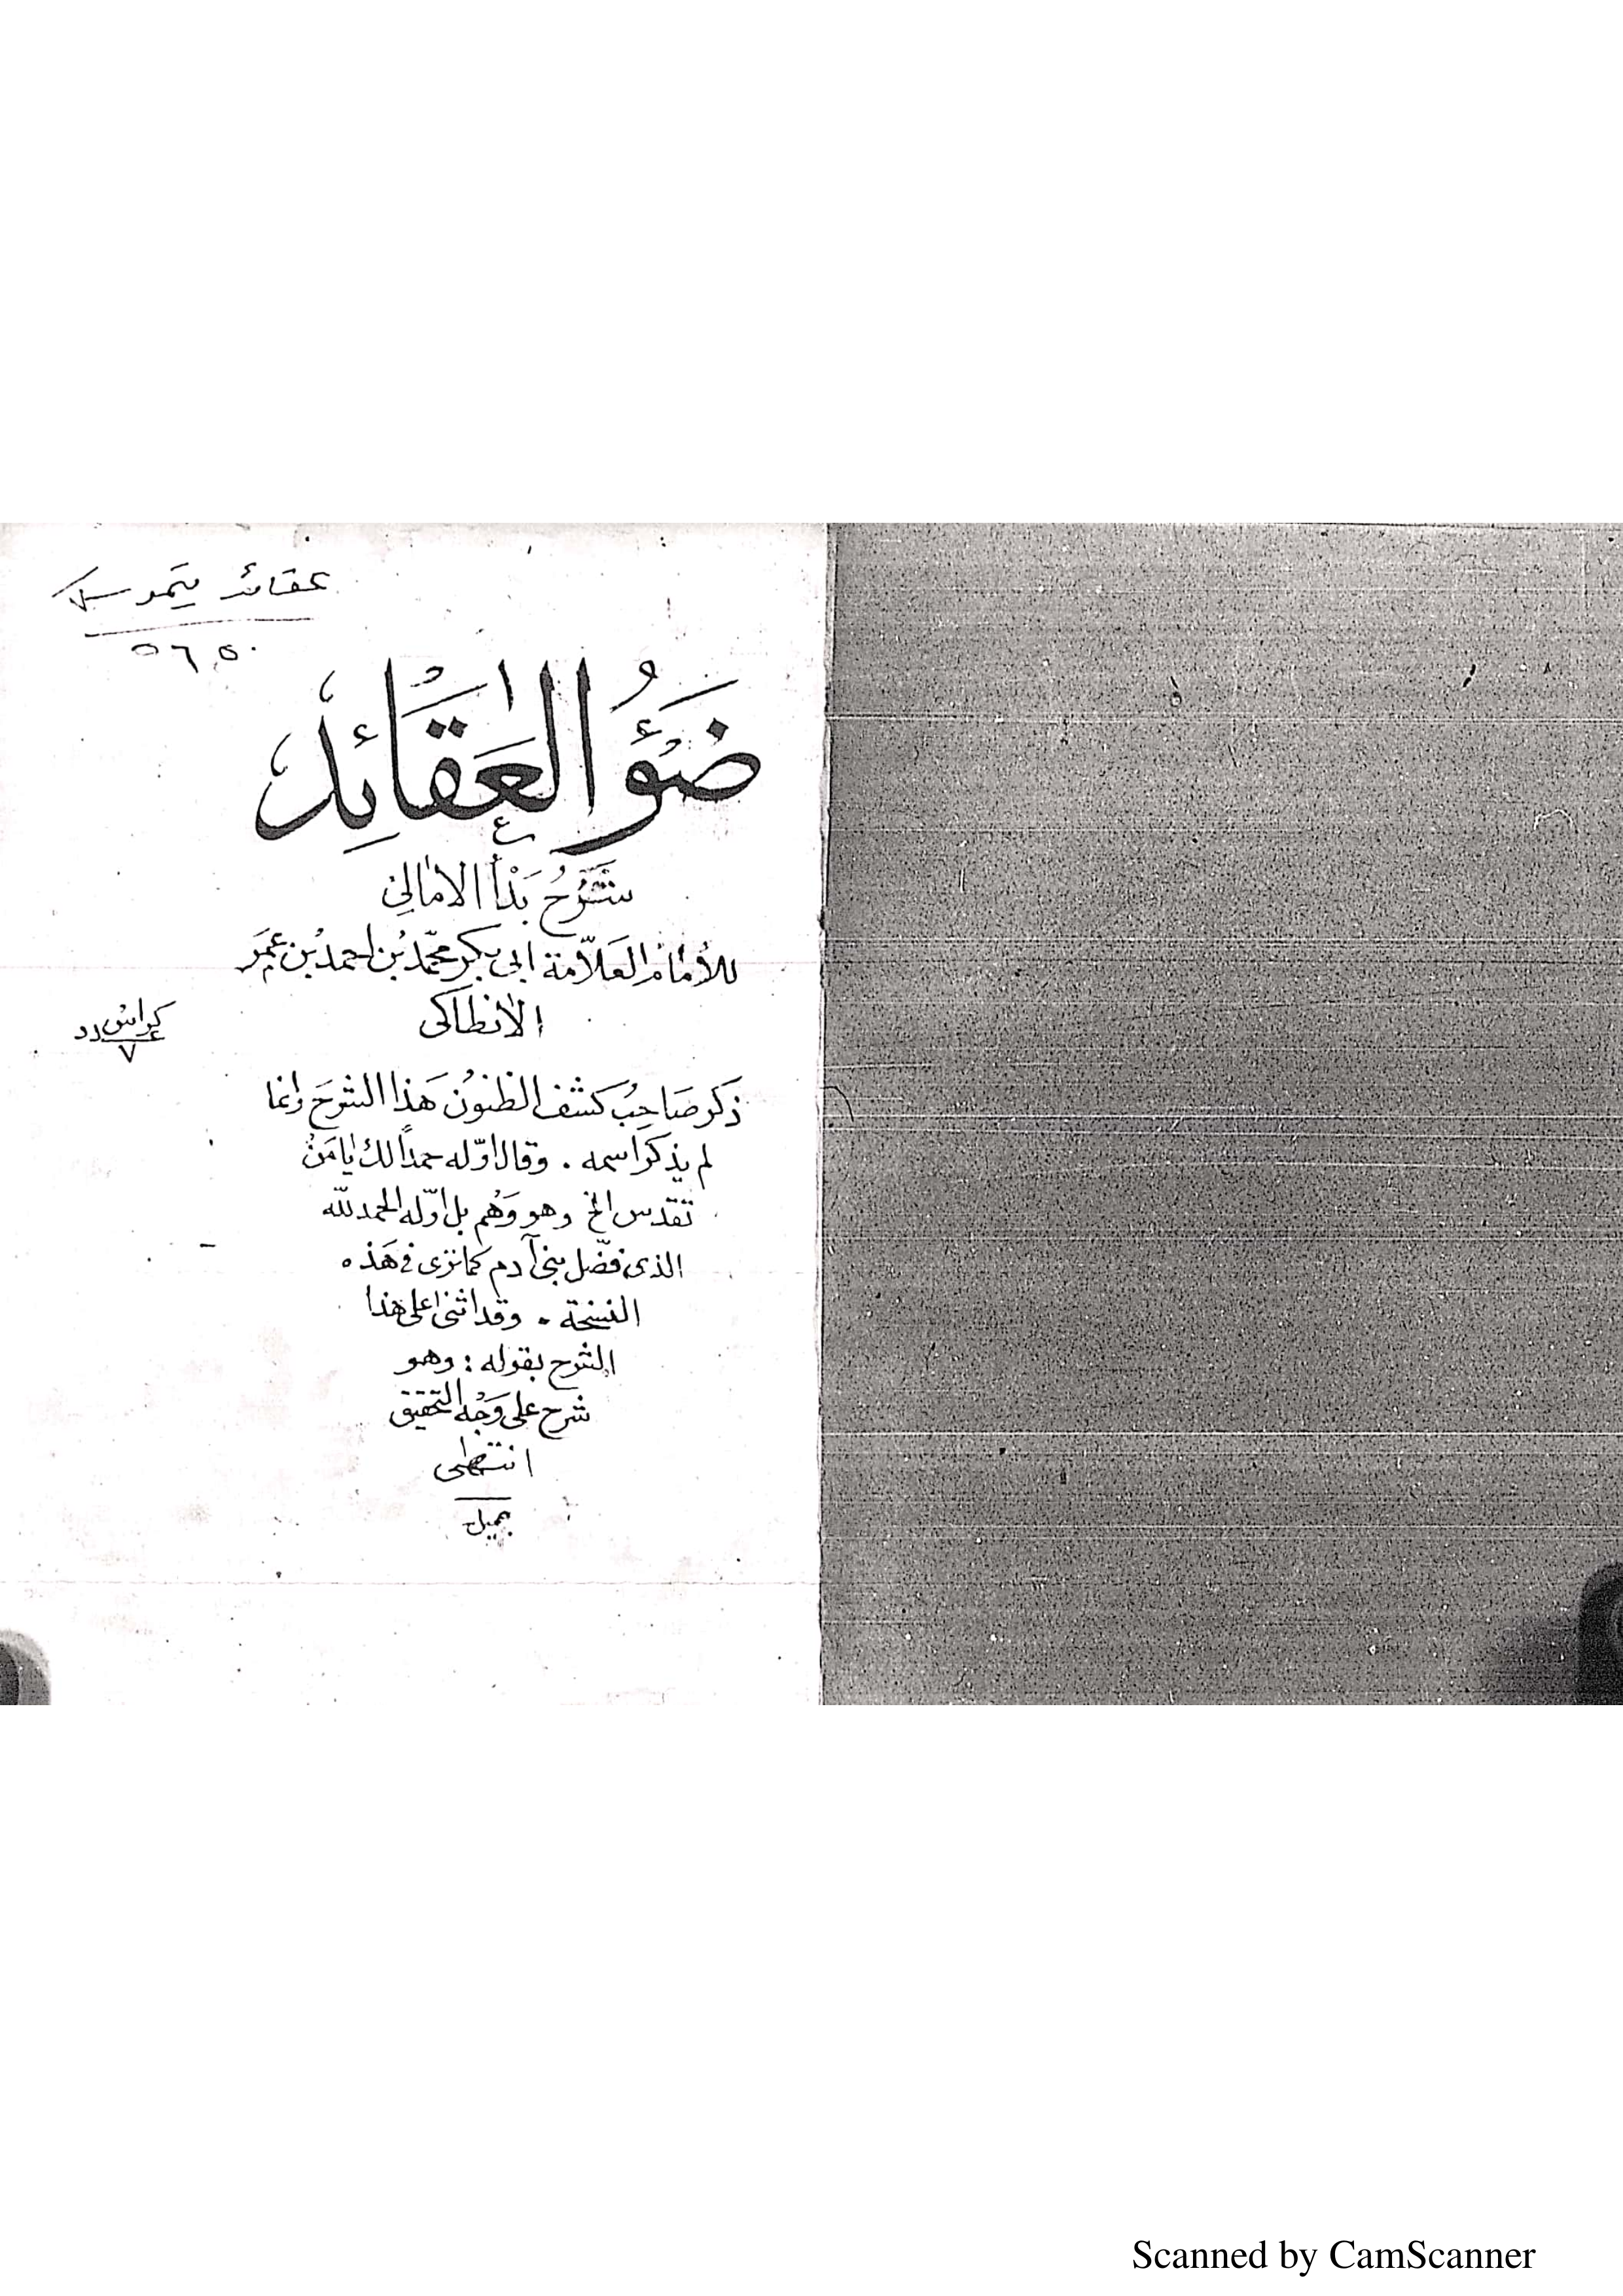 عقائد تيمور
٥٦٥٠
ضَوْءُ العَقَائِد
شَرْحُ بَدْأ الامالي
للأمام العَلاّمة ابي بكر محمّد بْن احمد بْن عمَر
الانطاكى
كراس
عدد
٧
ذَكر صَاحِبُ كَشف الظنوُن هَذا الشرحَ وانما
لم يذكر اسمه . وقال اوّله حمداً لك يا مَنْ
تقدس الخ وهو وَهْم بل اوّله الحمد للّه
الذى فضّل بنى آدم كما ترى فى هَذه
النسخة . وقد اثنى على هذا
الشرح بقوله : وهو
شرح على وَجْه التحقيق
انتهى
جميل
Scanned by CamScanner